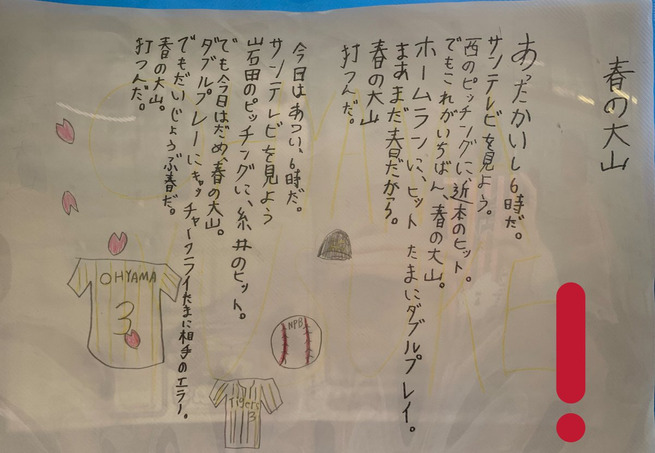 春の大山
あったかいし6時だ。
サンテレビを見よう。
西のピッチングに、近本のヒット。
でもこれがいちばん、春の大山。
ホームランに、ヒット たまにダブルプレイ。
まあまだ春だから。
春の大山
打つんだ。
今日はあつい、6時だ。
サンテレビを見よう
山石田のピッチングに、糸井のヒット。
でも今日はだめ、春の大山。
ダブルプレーにキャッチャーフライたまに相手のエラー。
でもだいじょうぶ春だ。
春の大山。
打つんだ。
OHYAMA
3
NPB
Tigers
3